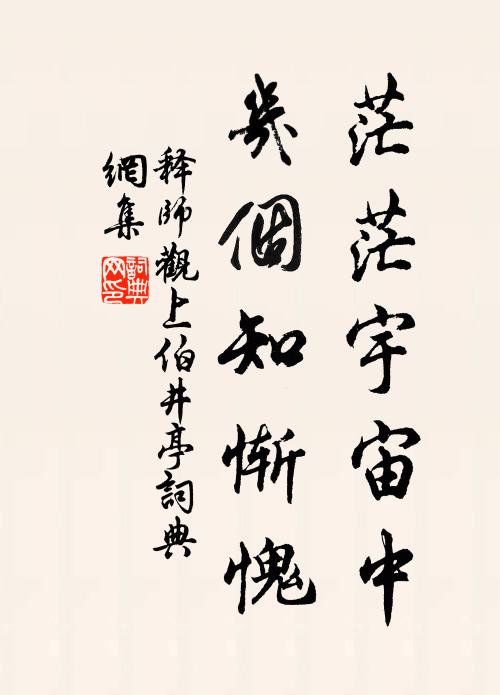 茫茫宇宙中
幾個知慚愧
释師觀上伯井亭詞典
網集
詞典
网印